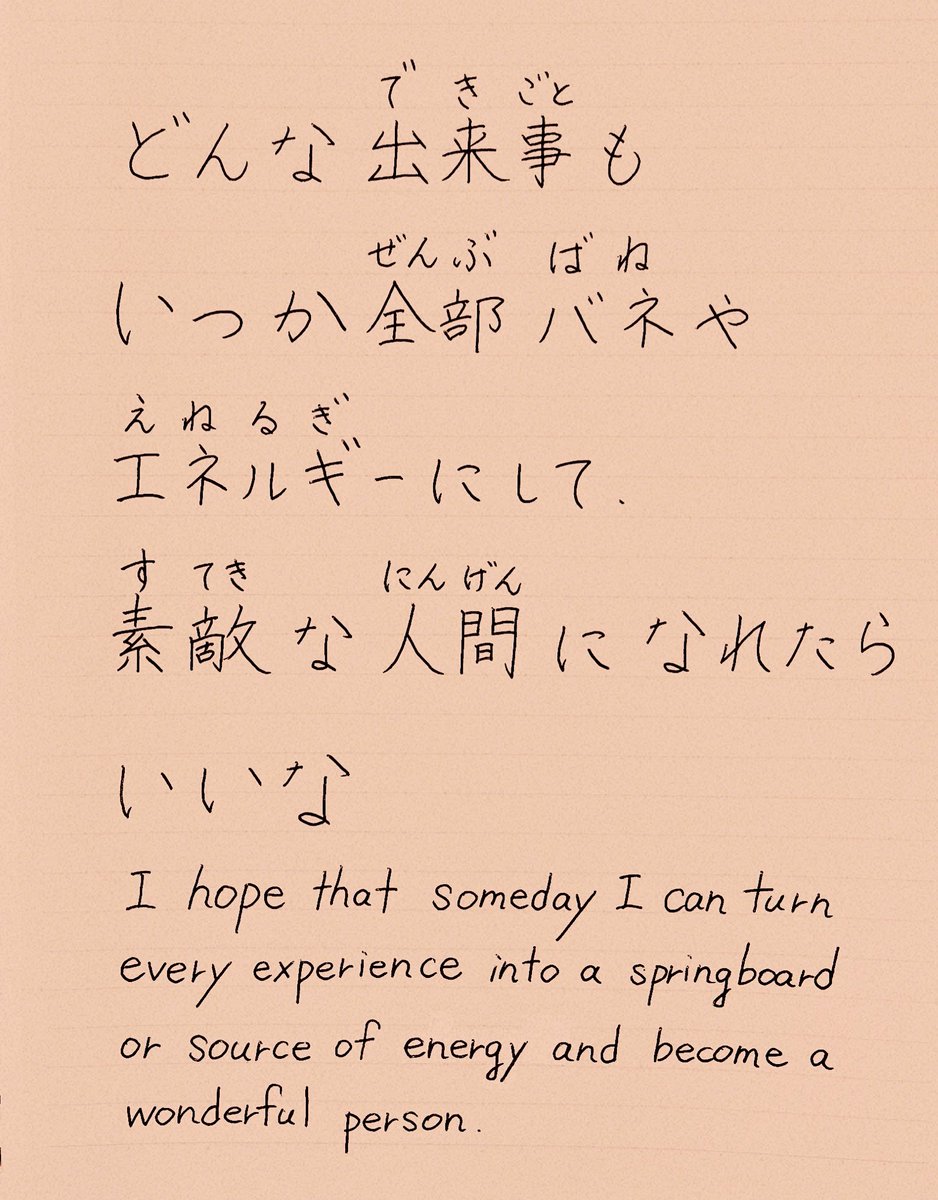 で き ごと
どんな出来事も
ぜんぶ ばね
いっか全部 バネや
えねるぎ
エネルギーにして.
す てき にん げん
素敵な人間になれたら
いいな
I hope that someday I can turn
every experience into a springboard
or source of energy and become a
wonderful person.